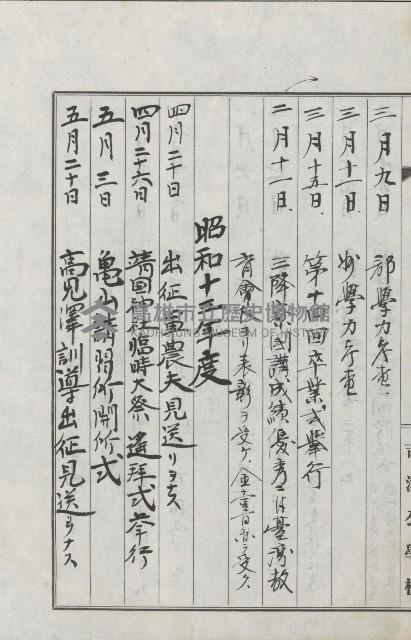 三月九日 部學力考査
三月十一日 州學力考査
三月十五日 第十回卒業式擧行
二月十一日 國講成績優秀ニ付臺灣教
育會ヨリ表彰ヲ受ケ金壹百
昭和十三年度
四月二十日 出征軍農夫見送リヲナス
四月二十六日 靖國神社臨時大祭遙拜式擧行
五月三日 亀山講習所開所式
五月二十日 高見澤訓導出征見送ヲナス
高雄市立歷史博物館
KAOHSIUNG MUSEUM OF HISTORY